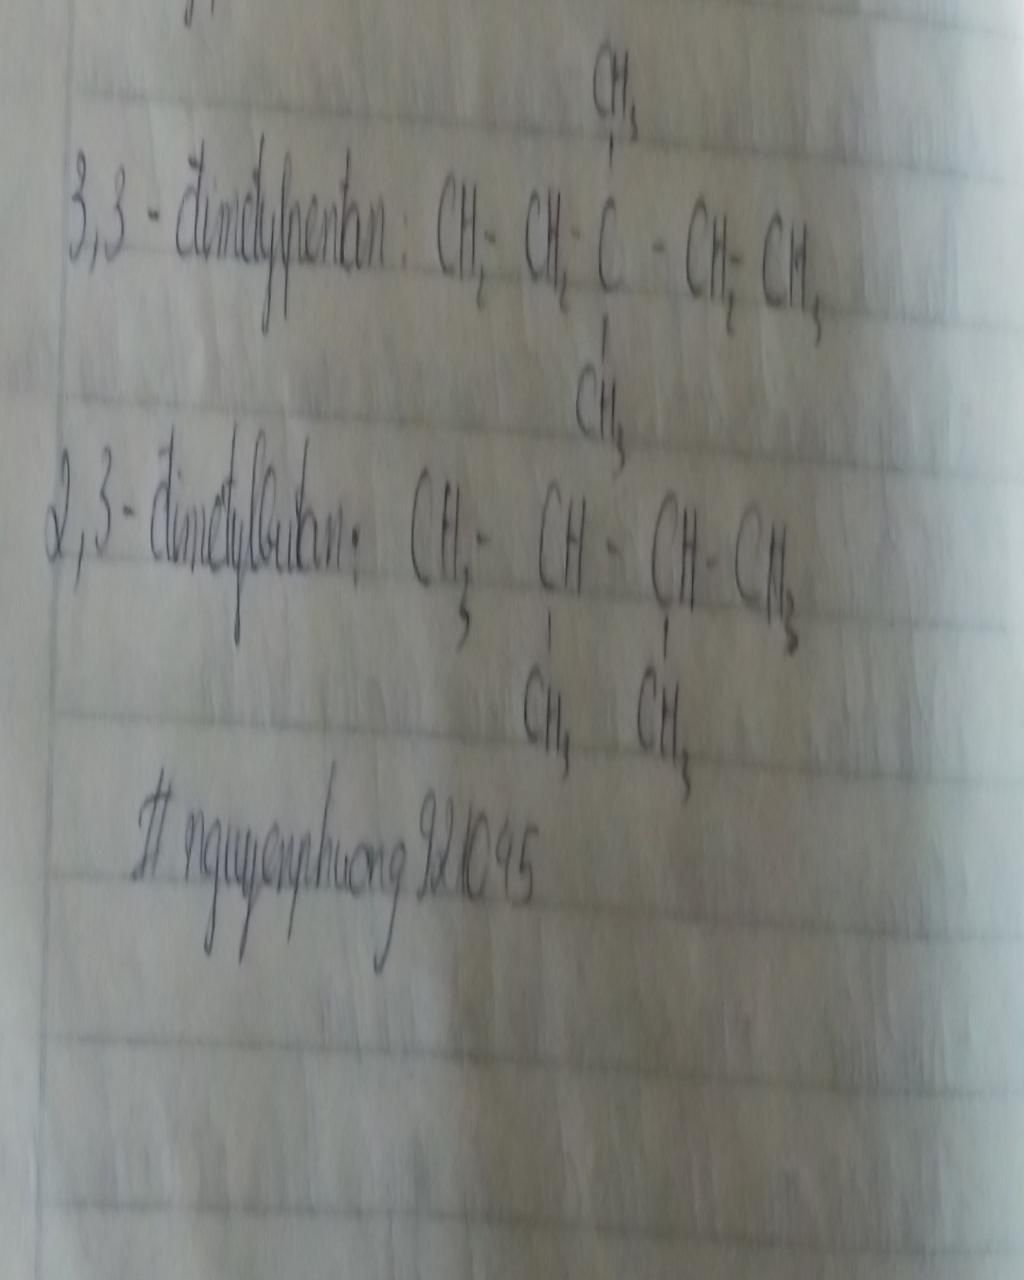 CH₃
3,3 - đimetylpentan: CH₂ - CH₂ - C - CH₂ - CH₃
CH₃
2,3 - đimetylbutan: CH₃ - CH - CH - CH₃
CH₃ CH₃
# nguyenphuong921095